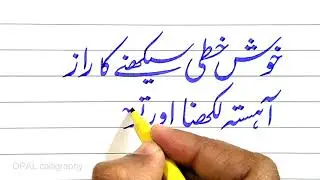 خوش خطی سیکھنے کا راز
آہستہ لکھنا اور
OPAL calligraphy